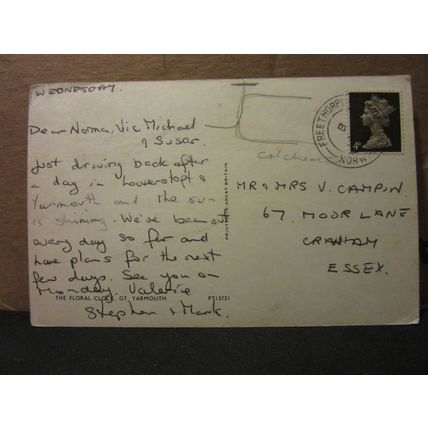 WEDNESDAY.
Dear Norma, Vic, Michael
& Susan.
Just driving back after
a day in Lowerstoft &
Yarmouth and the sun
is shining. We've been out
every day so far and
have plans for the next
few days. See you on
Monday. Valerie
Stephen & Mark.
THE FLORAL CLOCK, GT. YARMOUTH
PT13721
PRINTED IN GREAT BRITAIN
FREETHORPE
NORW
4D
MR & MRS V. CAMPIN
67. MOOR LANE
CRANHAM
ESSEX.